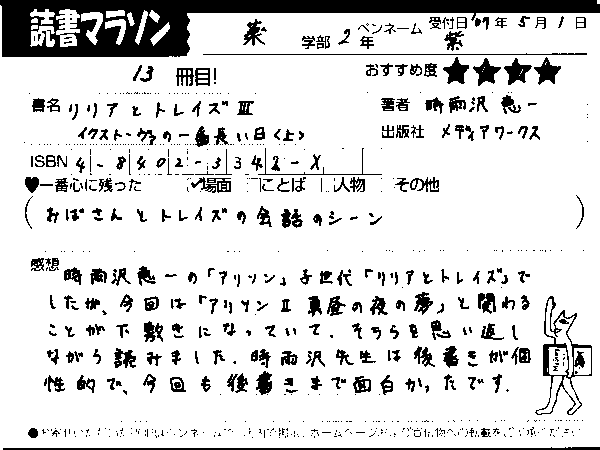 読書マラソン
薬 学部 2 年 ペンネーム 紫 受付日 '07 年 5 月 1 日
13 冊目! おすすめ度 ★★★★
書名 リリアとトレイズⅢ 著者 時雨沢 恵一
イクストーヴァの一番長い日〈上〉 出版社 メディアワークス
ISBN 4-8402-3342-X
♥一番心に残った ✓場面 □ことば □人物 その他
(おばさんとトレイズの会話のシーン)
感想 時雨沢恵一の「アリソン」子世代「リリアとトレイズ」で
したが、今回は「アリソンⅡ 真昼の夜の夢」と関わる
ことが下敷きになっていて、そちらを思い返し
ながら読みました。時雨沢先生は後書きが個
性的で、今回も後書きまで面白かったです。